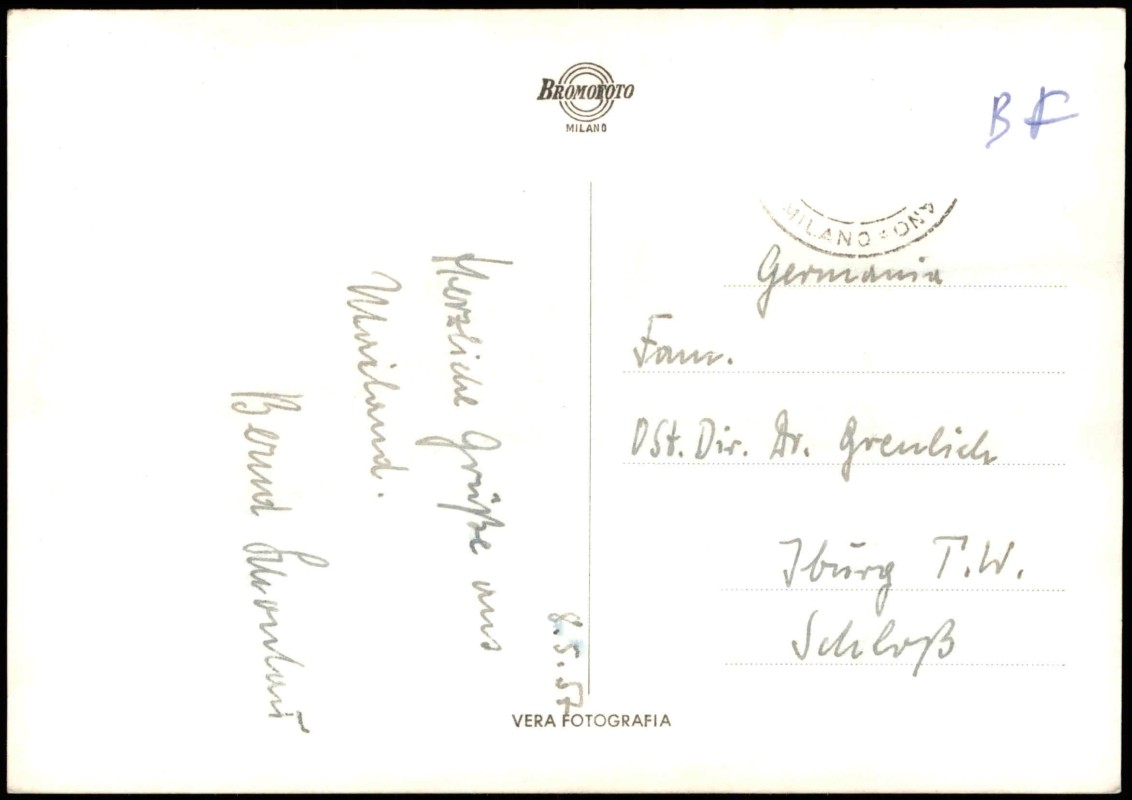 BROMOFOTO
MILANO
B F
MILANO
Germania
Fam.
OSt. Dir. Dr. Grenlich
Iburg T.W.
Schloß
8.5.57
Herzliche Grüße aus
Mailand.
Bernd
VERA FOTOGRAFIA